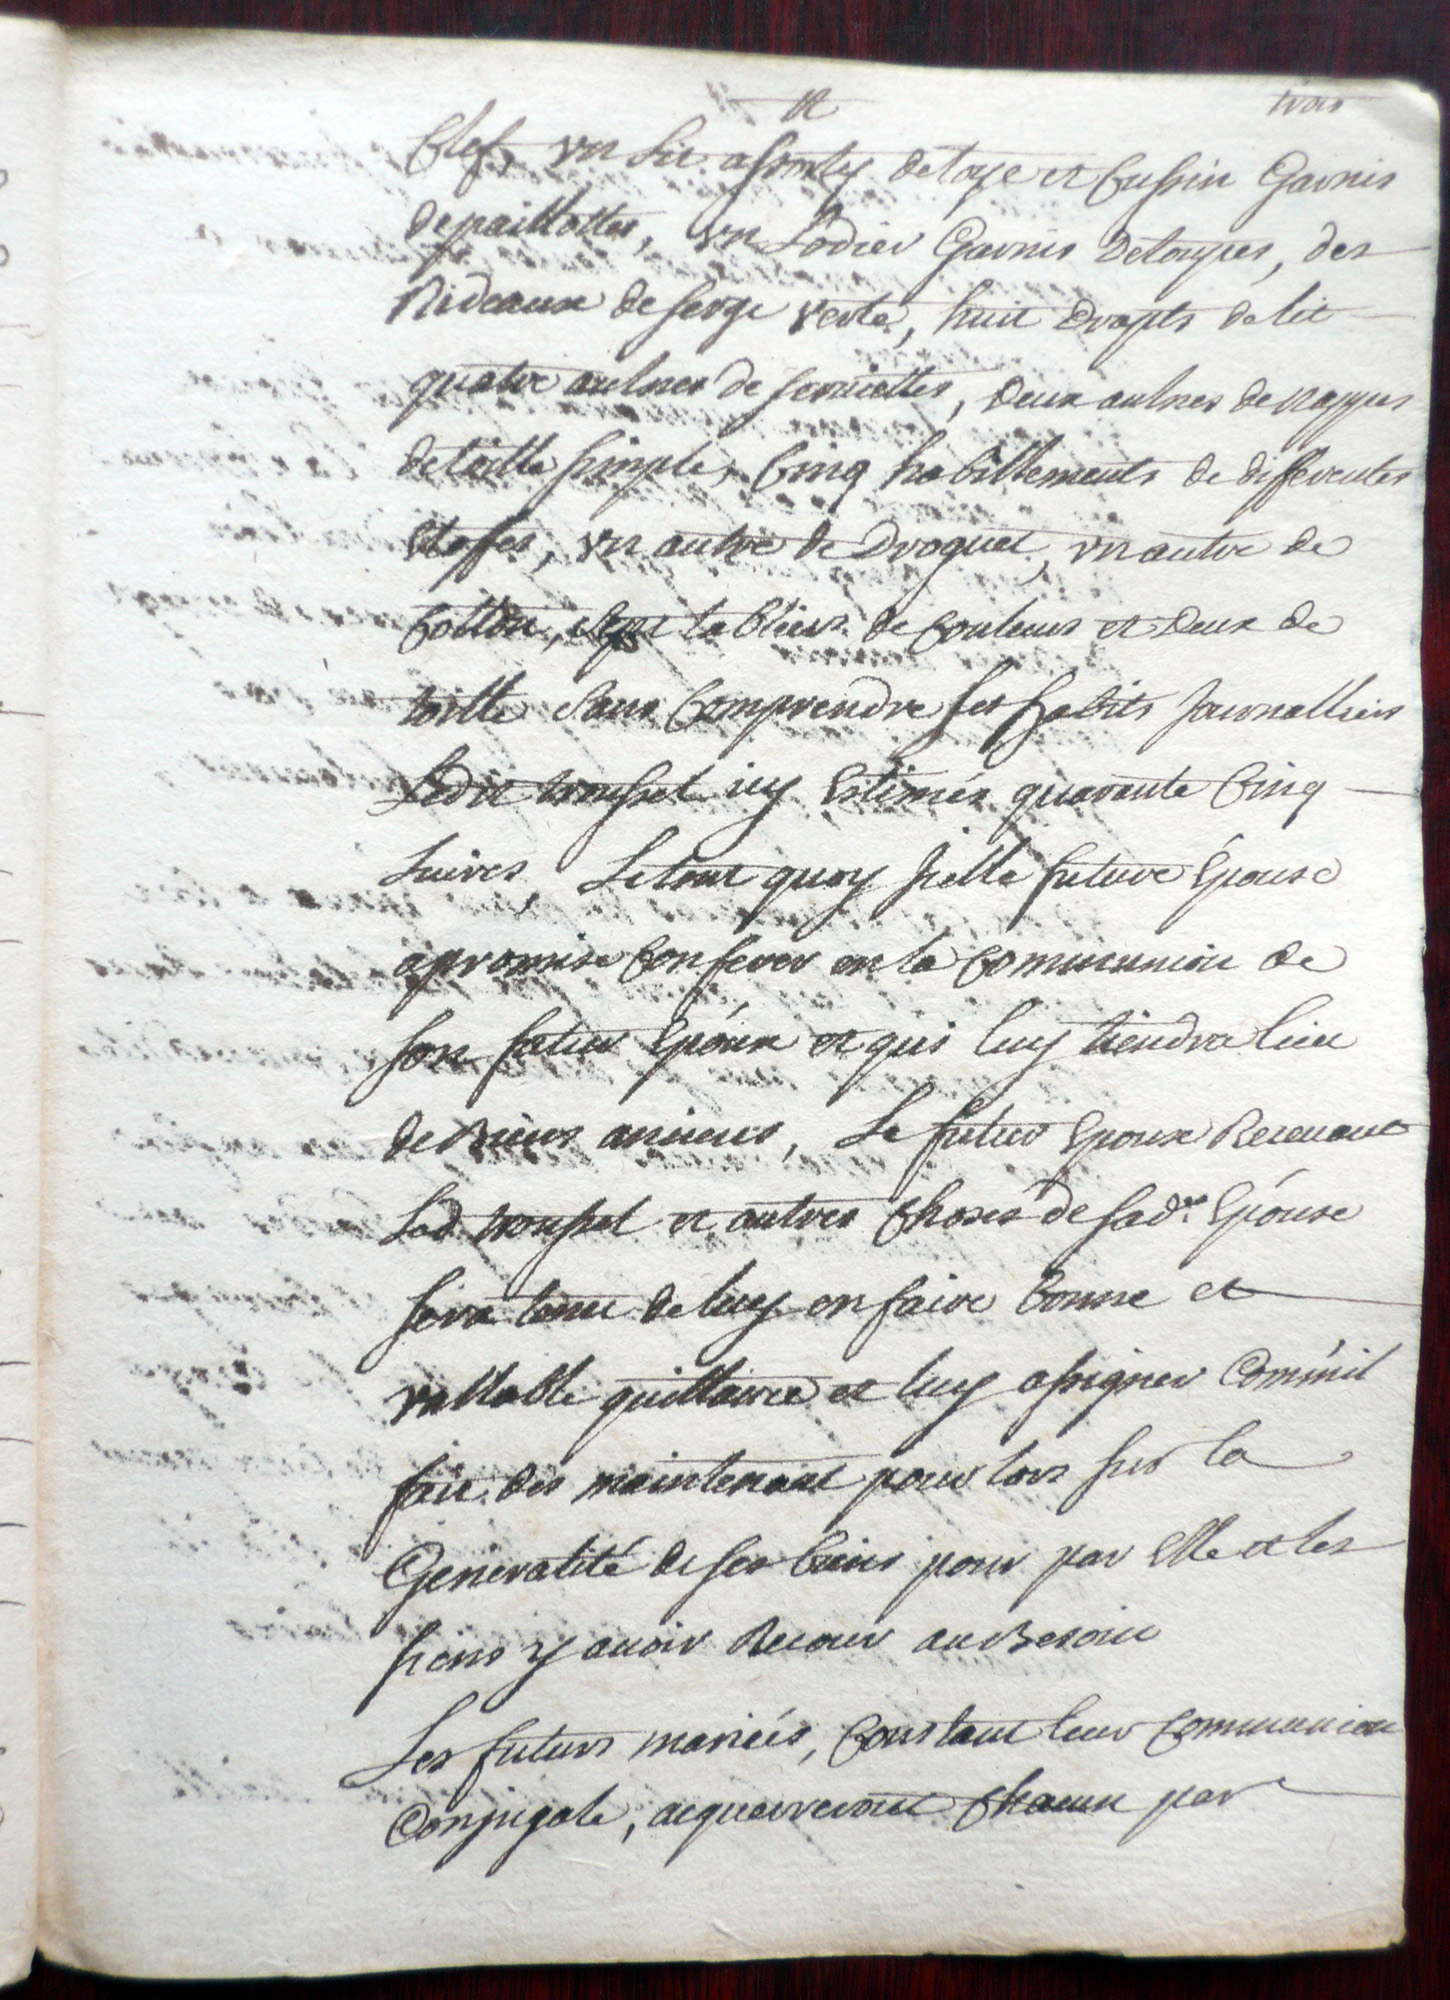 et trois
Clef, un lit assorty de taye et Cussin Garnis
de paillottes, un Lodier Garnis d'etouppes, des
Rideaux de serge verte, huit Drapts de lit
quatre aulnes de serviettes, deux aulnes de nappes
de toille simple, Cinq habillements de differentes
Etoffes, un autre de Droguet, un autre de
Cotton, sept tabliers de Couleurs et deux de
toille sans Comprendre ses habits Journalliers
Ledit troussel icy Estimés quarante Cinq
Livres, Le tout quoy Jcelle future Epouse
a promise Conferer en la Communion de
son futur Epoux et qui luy tiendra lieu
de Biens anciens, Le futur Epoux Recevant
Led. troussel et autres Choses de sad.e Epouse
sera tenu de luy en faire bonne et
vallable quittance et luy assigner Comme il
fait des maintenant pour lors sur la
Generalité de ses biens pour par Elle et les
siens y avoir Recour au Besoin
Les futurs mariés, Constant leur Communion
Conjugale, acquerreront Chacun par